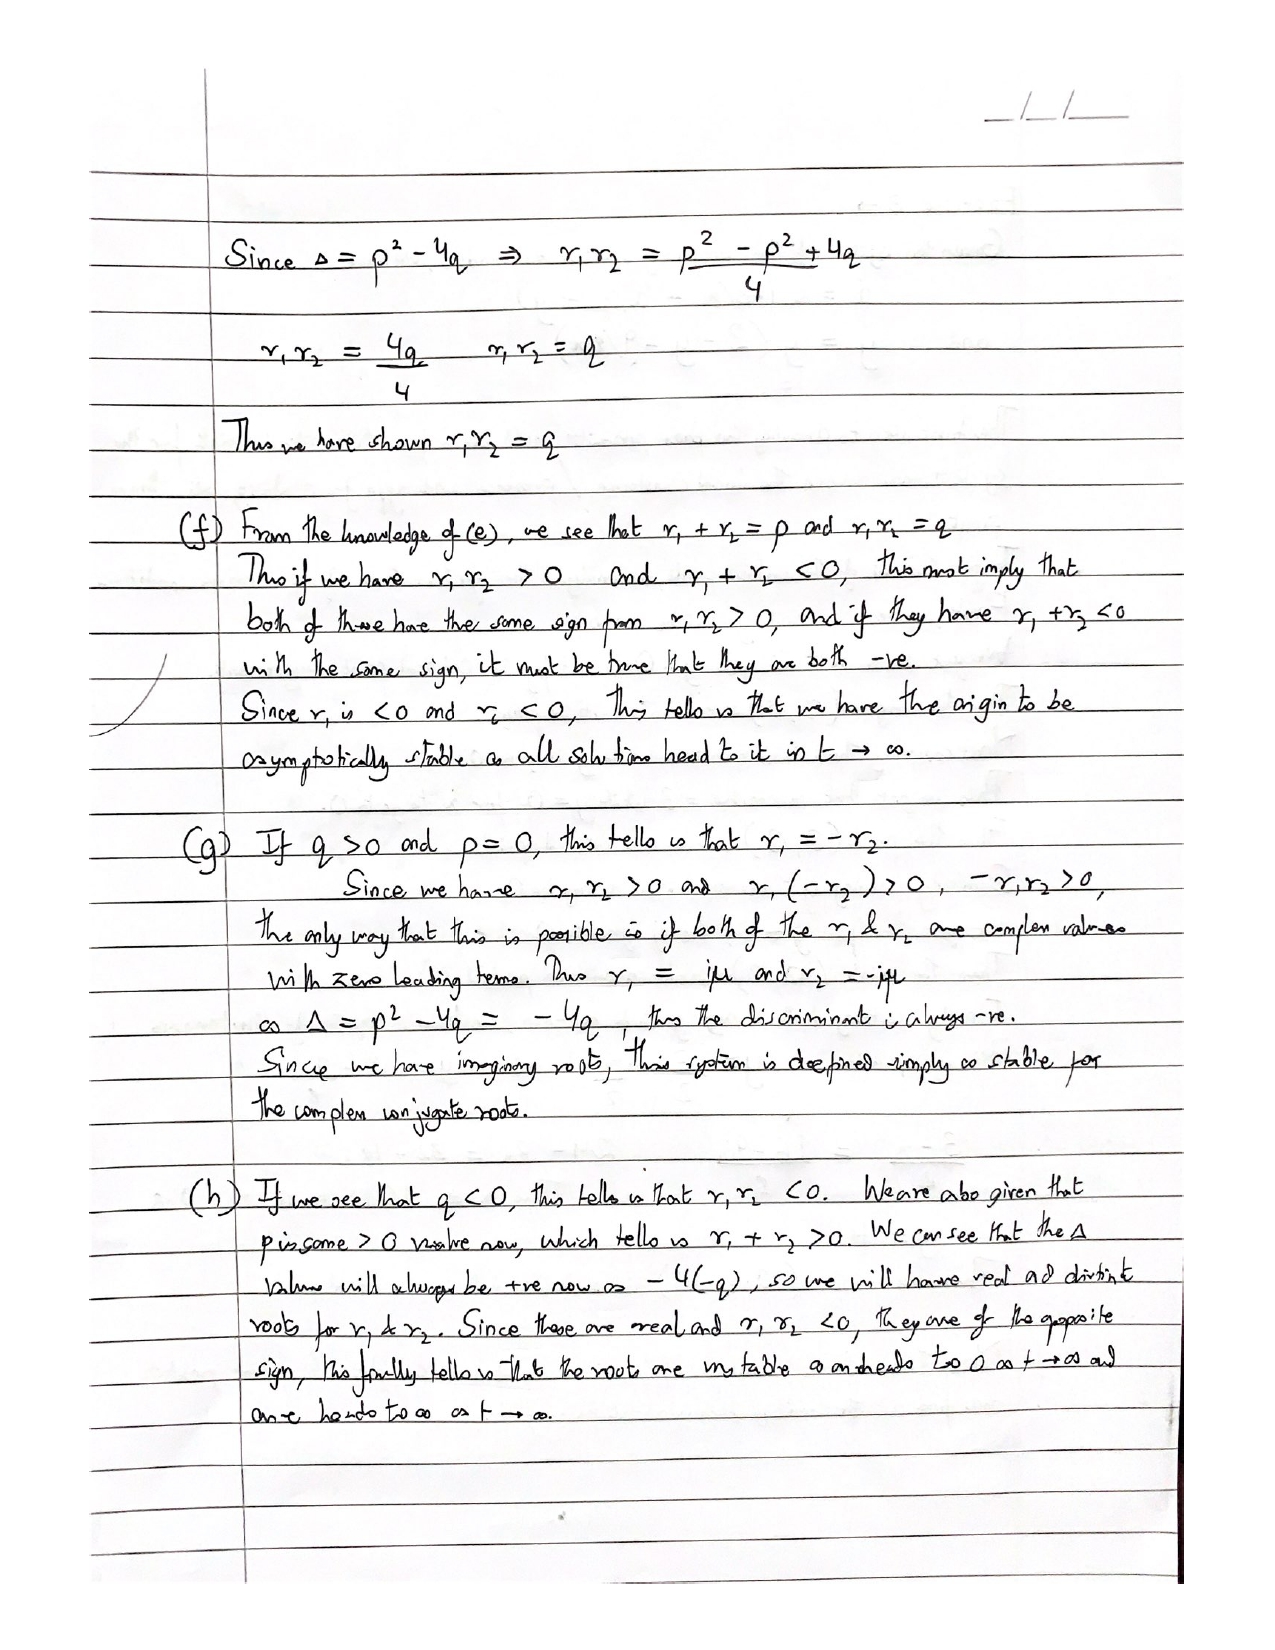 _/_/__
Since Δ = p² - 4q ⇒ r₁r₂ = (p² - p² + 4q)/4
r₁r₂ = 4q/4    r₁r₂ = q
Thus we have shown r₁r₂ = q
(f) From the knowledge of (e), we see that r₁ + r₂ = p and r₁r₂ = q
Thus if we have r₁r₂ > 0 and r₁ + r₂ < 0, this must imply that
both of these have the same sign from r₁r₂ > 0, and if they have r₁ + r₂ < 0
with the same sign, it must be true that they are both -ve.
Since r₁ is < 0 and r₂ < 0, this tells us that we have the origin to be
asymptotically stable as all solutions head to it in t → ∞.
(g) If q > 0 and p = 0, this tells us that r₁ = - r₂.
Since we have r₁r₂ > 0 and r₁(-r₂) > 0, -r₁r₂ > 0,
the only way that this is possible is if both of the r₁ & r₂ are complex values
with zero leading terms. Thus r₁ = iμ and r₂ = -iμ
as Δ = p² - 4q = - 4q, thus the discriminant is always -ve.
Since we have imaginary roots, this system is deefined simply as stable for
the complex conjugate roots.
(h) If we see that q < 0, this tells us that r₁r₂ < 0. We are also given that
p is some > 0 value now, which tells us r₁ + r₂ > 0. We can see that the Δ
value will always be +ve now as - 4(-q), so we will have real ad distint
roots for r₁ & r₂. Since these are real and r₁r₂ < 0, they are of the opposite
sign, this finally tells us that the roots are unstable as on heads to 0 as t → ∞ and
one heads to ∞ as t → ∞.